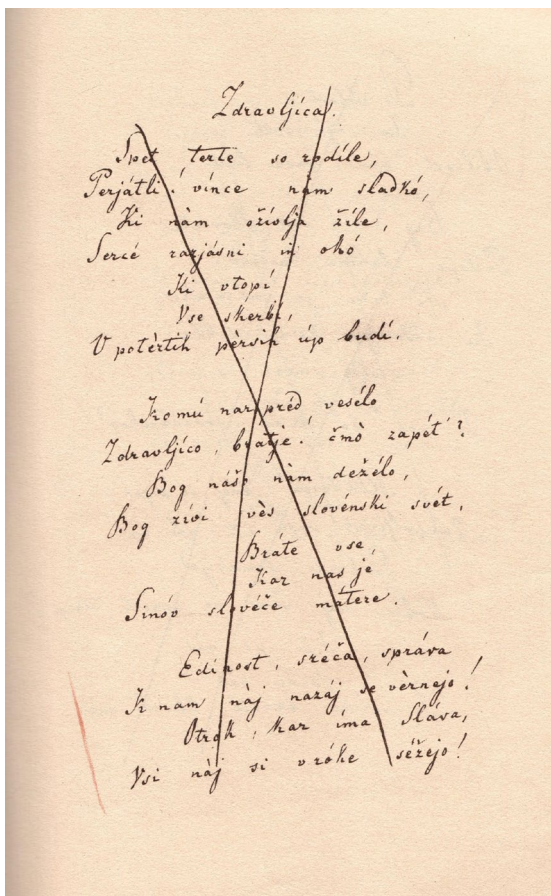 Zdravljíca.
Spet terte so rodíle,
Perjátli! vínce nàm sladkó,
Ki nàm ožívlja žíle,
Sercé razjásni in okó
Ki vtopí
Vse skerbí,
V potèrtih pèrsih úp budí.
Komú narpréd veselo
Zdravljíco, bratje! čmò zapét'?
Bog našo nàm deželo,
Bog živi vès slovénski svét,
Bráte vse,
Kar nas je
Sinóv slovéče mátere.
Edinost, sréča, správa
K nam nàj nazáj se vèrnejo!
Otrók, kar íma Sláva,
Vsi nàj si v róke séžejo!